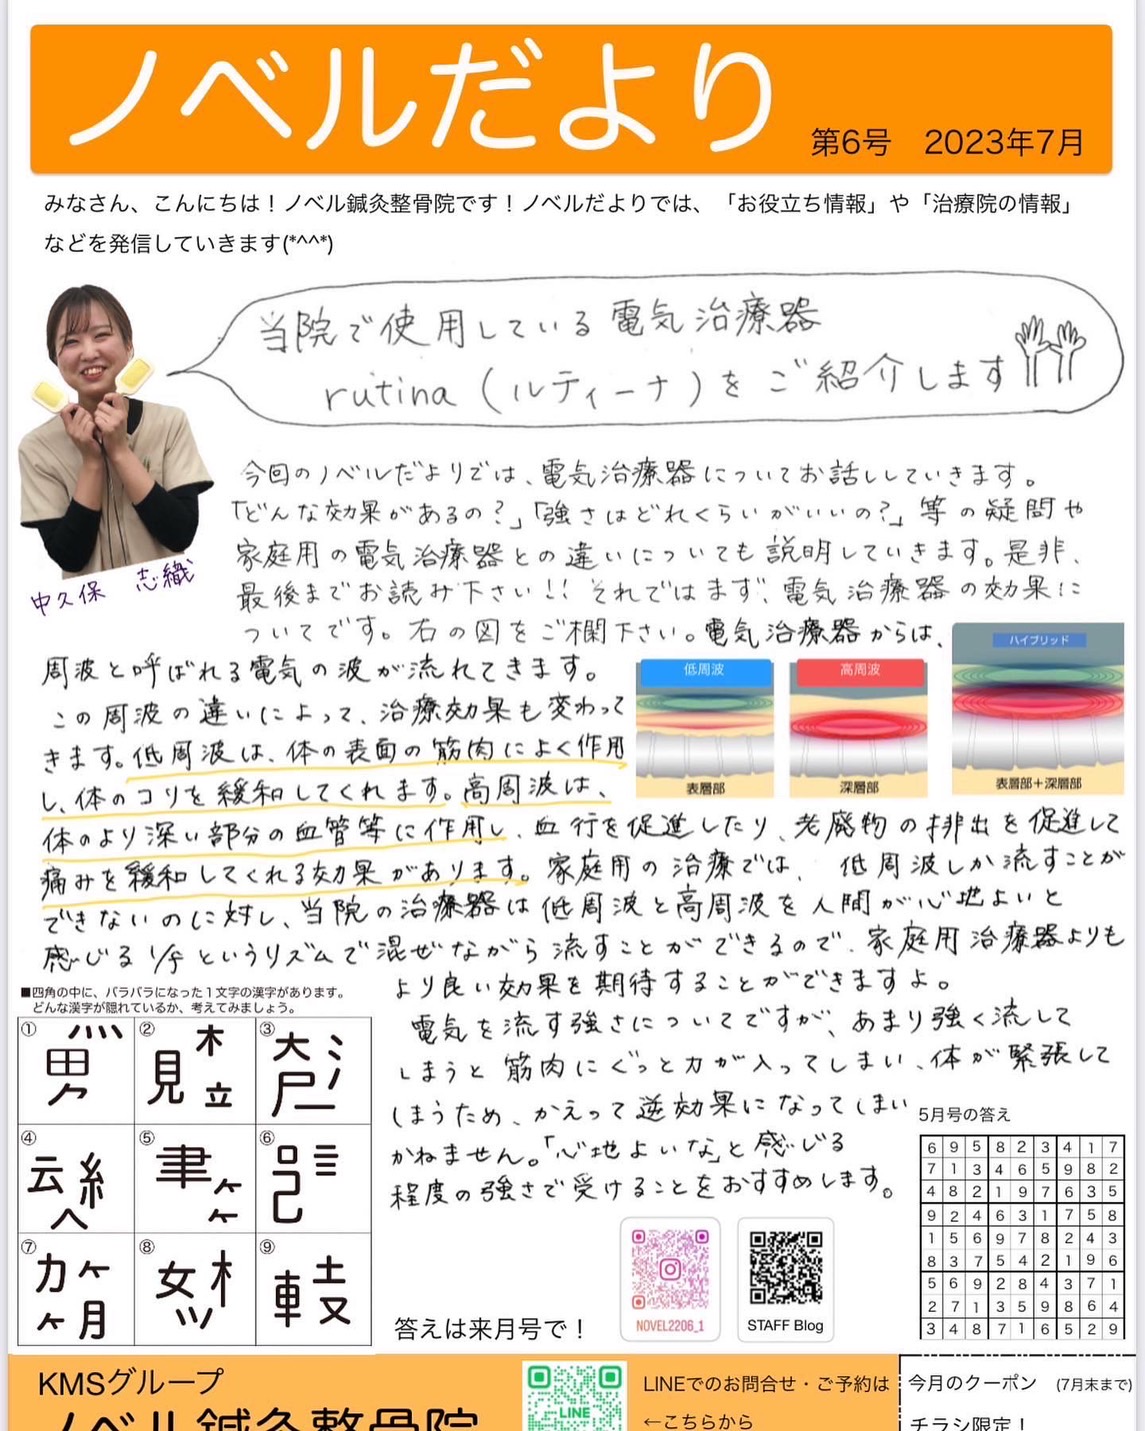 ノベルだより
第6号　2023年7月
みなさん、こんにちは！ノベル鍼灸整骨院です！ノベルだよりでは、「お役立ち情報」や「治療院の情報」
などを発信していきます(*^^*)
当院で使用している電気治療器
rutina（ルティーナ）をご紹介します
中久保　志織
今回のノベルだよりでは、電気治療器についてお話ししていきます。
「どんな効果があるの？」「強さはどれくらいがいいの？」等の疑問や
家庭用の電気治療器との違いについても説明していきます。是非、
最後までお読み下さい!! それではまず、電気治療器の効果に
ついてです。右の図をご欄下さい。電気治療器からは、
周波と呼ばれる電気の波が流れてきます。
この周波の違いによって、治療効果も変わって
きます。低周波は、体の表面の筋肉によく作用
し、体のコリを緩和してくれます。高周波は、
体のより深い部分の血管等に作用し、血行を促進したり、老廃物の排出を促進して
痛みを緩和してくれる効果があります。家庭用の治療では、低周波しか流すことが
できないのに対し、当院の治療器は低周波と高周波を人間が心地よいと
感じる1/fというリズムで混ぜながら流すことができるので、家庭用治療器よりも
より良い効果を期待することができますよ。
電気を流す強さについてですが、あまり強く流して
しまうと筋肉にぐっと力が入ってしまい、体が緊張して
しまうため、かえって逆効果になってしまい
かねません。「心地よいな」と感じる
程度の強さで受けることをおすすめします。
低周波
表層部
高周波
深層部
ハイブリッド
表層部＋深層部
■四角の中に、バラバラになった１文字の漢字があります。
どんな漢字が隠れているか、考えてみましょう。
① ② ③
④ ⑤ ⑥
⑦ ⑧ ⑨
答えは来月号で！
NOVEL2206_1
STAFF Blog
5月号の答え
6 9 5 8 2 3 4 1 7
7 1 3 4 6 5 9 8 2
4 8 2 1 9 7 6 3 5
9 2 4 6 3 1 7 5 8
1 5 6 9 7 8 2 4 3
8 3 7 5 4 2 1 9 6
5 6 9 2 8 4 3 7 1
2 7 1 3 5 9 8 6 4
3 4 8 7 1 6 5 2 9
KMSグループ
ノベル鍼灸整骨院
LINE
LINEでのお問合せ・ご予約は
←こちらから
今月のクーポン　(7月末まで)
チラシ限定！